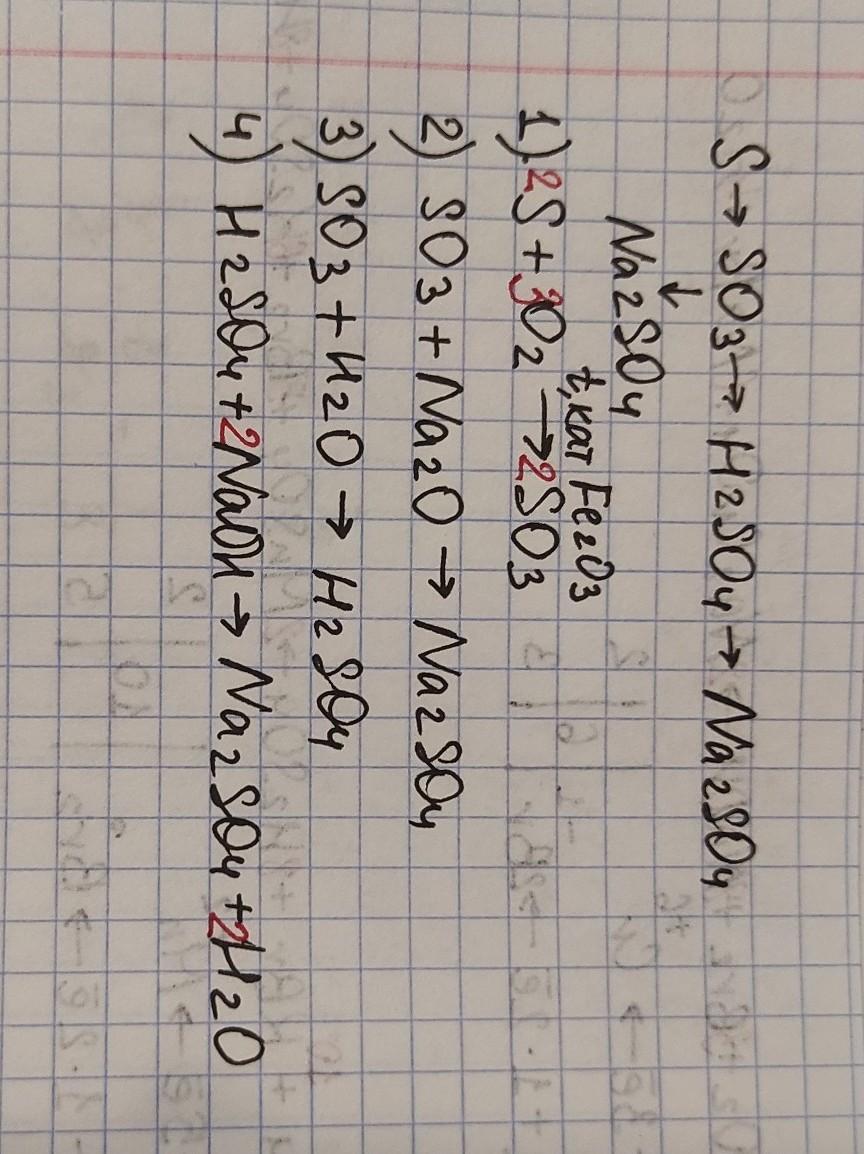 S → SO3 → H2SO4 → Na2SO4
↓
Na2SO4
t, кат Fe2O3
1) 2S + 3O2 → 2SO3
2) SO3 + Na2O → Na2SO4
3) SO3 + H2O → H2SO4
4) H2SO4 + 2NaOH → Na2SO4 + 2H2O